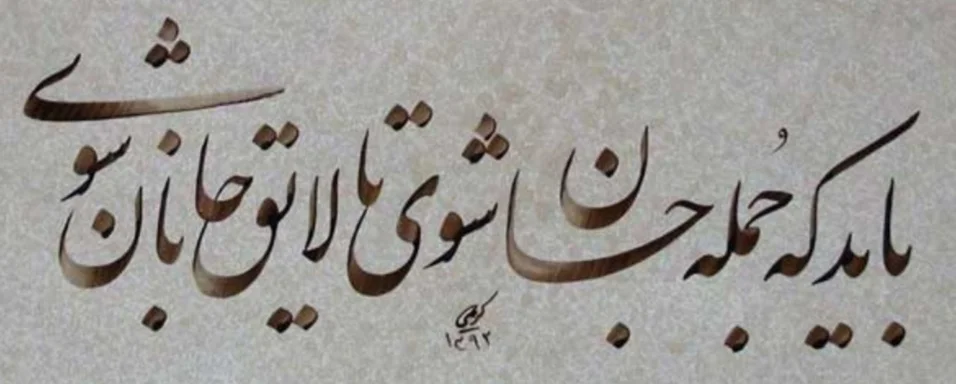 باید که جمله جان شوی تا لایق جانان شوی
۱۳۹۲